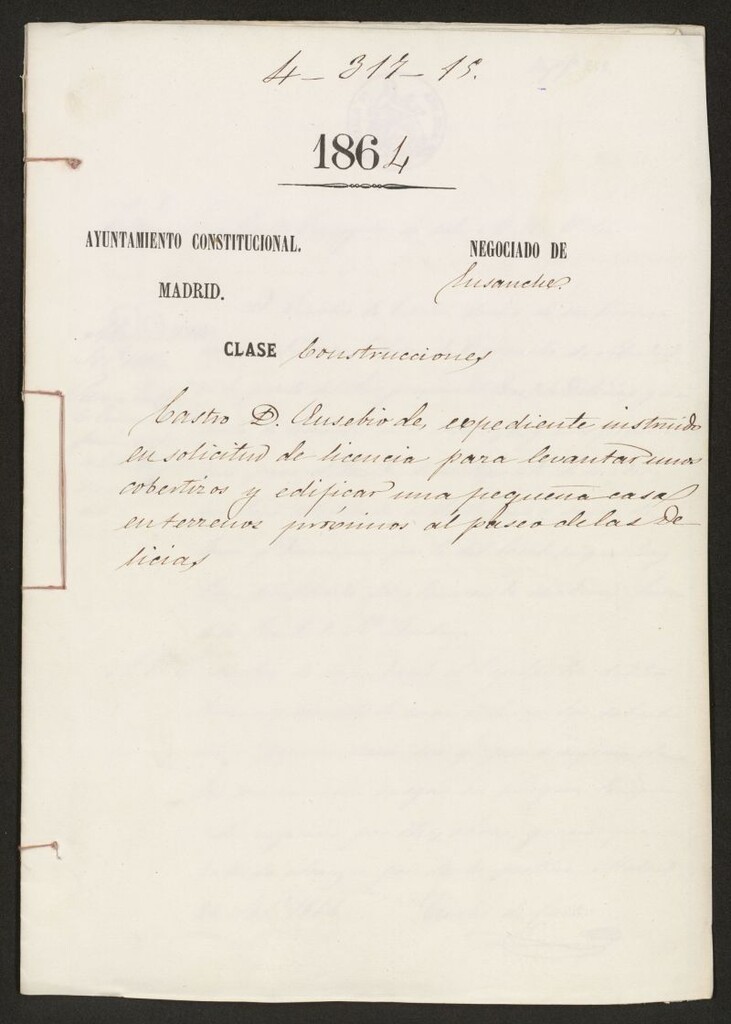 4-317-15.
1864
AYUNTAMIENTO CONSTITUCIONAL.
MADRID.
NEGOCIADO DE
Ensanche.
CLASE Construcciones
Castro D. Eusebio de, expediente instruido
en solicitud de licencia para levantar unos
cobertizos y edificar una pequeña casa
en terrenos próximos al paseo de las De
licias